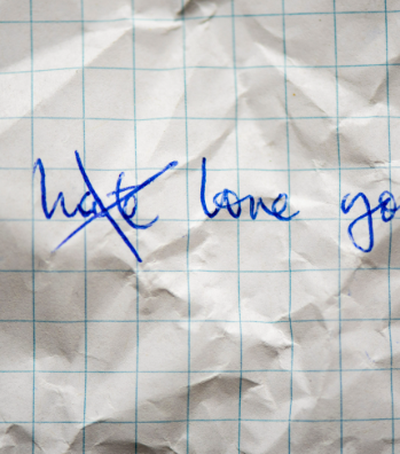 hate love yo